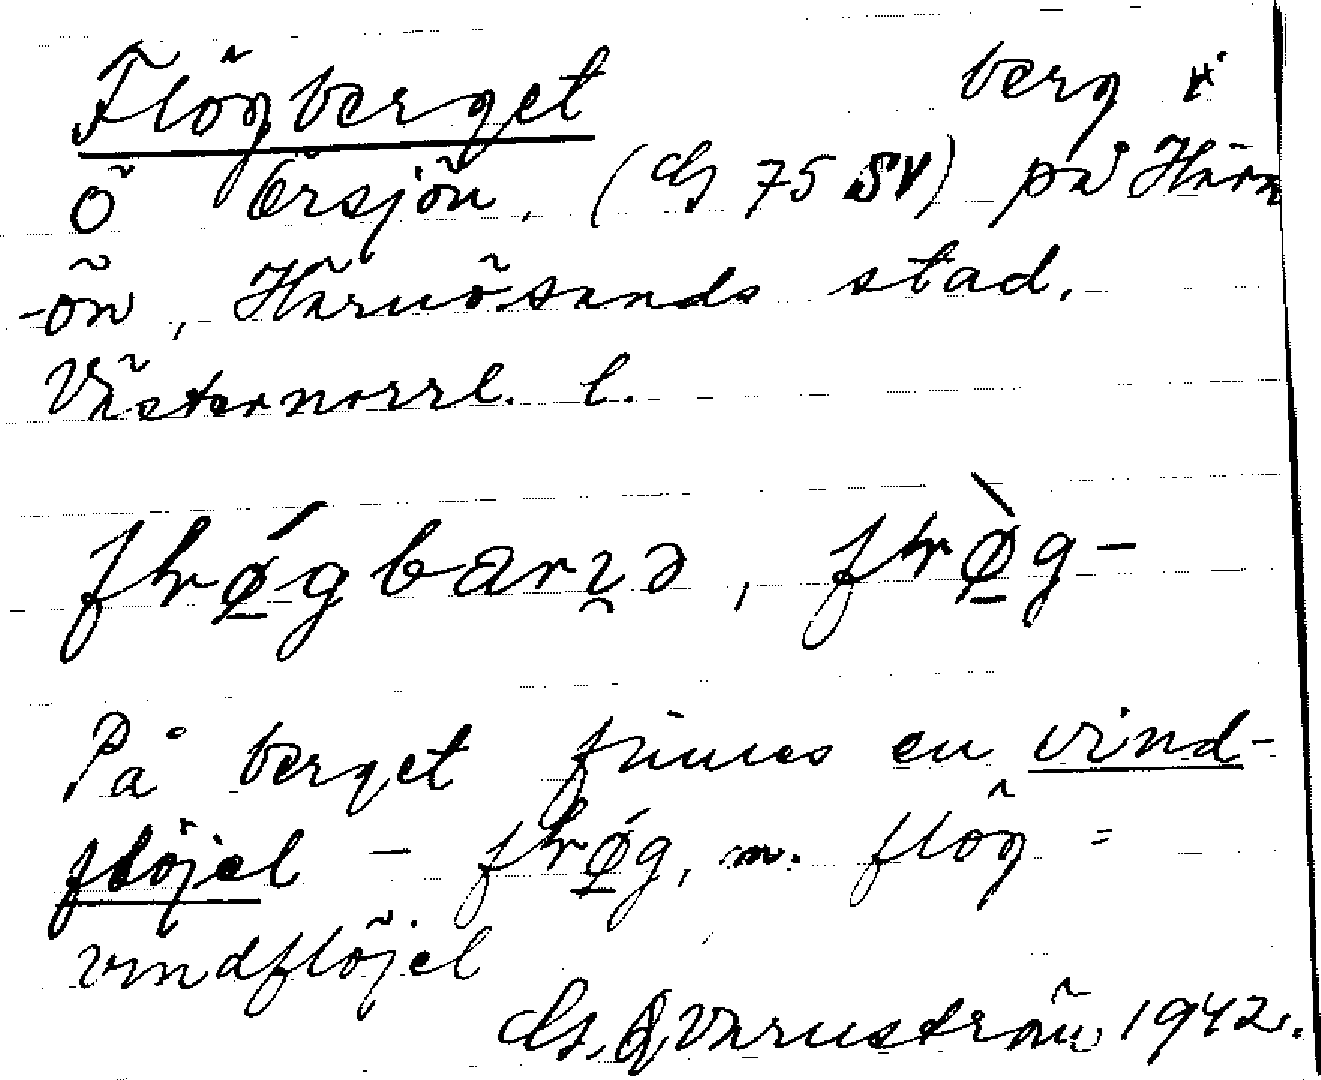 Flögberget berg i
Ö Örsjön, (Gs 75 SV) på Härn
-ön, Härnösands stad,
Västernorrl. l.
flrǿ̱gbærı̮ə, flrø̱̀g-
På berget finnes en vind-
flöjel – flrǿ̱g, m. flög =
vindflöjel
Varnström 1942.